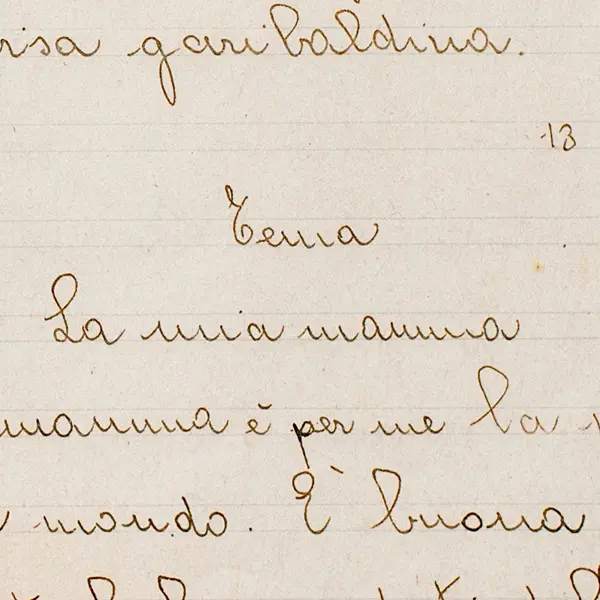 risa garibaldina.
13
Tema
La mia mamma
mamma è per me la
mondo. È buona